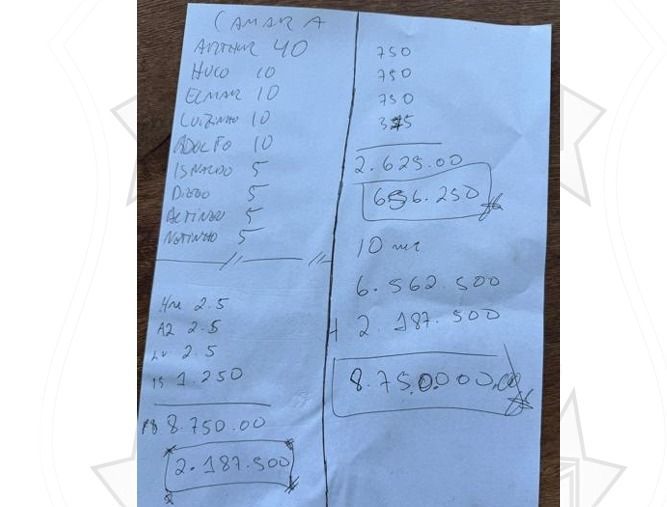 CAMARA
ARTHUR 40
HUGO 10
ELMAR 10
LUIZINHO 10
ADOLFO 10
ISNALDO 5
DIEGO 5
ALTINEU 5
NETINHO 5
HM 2.5
A2 2.5
LU 2.5
IS 1.250
8.750.00
2.187.500
750
750
750
375
2.625.00
656.250
10 mi
6.562.500
+ 2.187.500
8.750.000,00